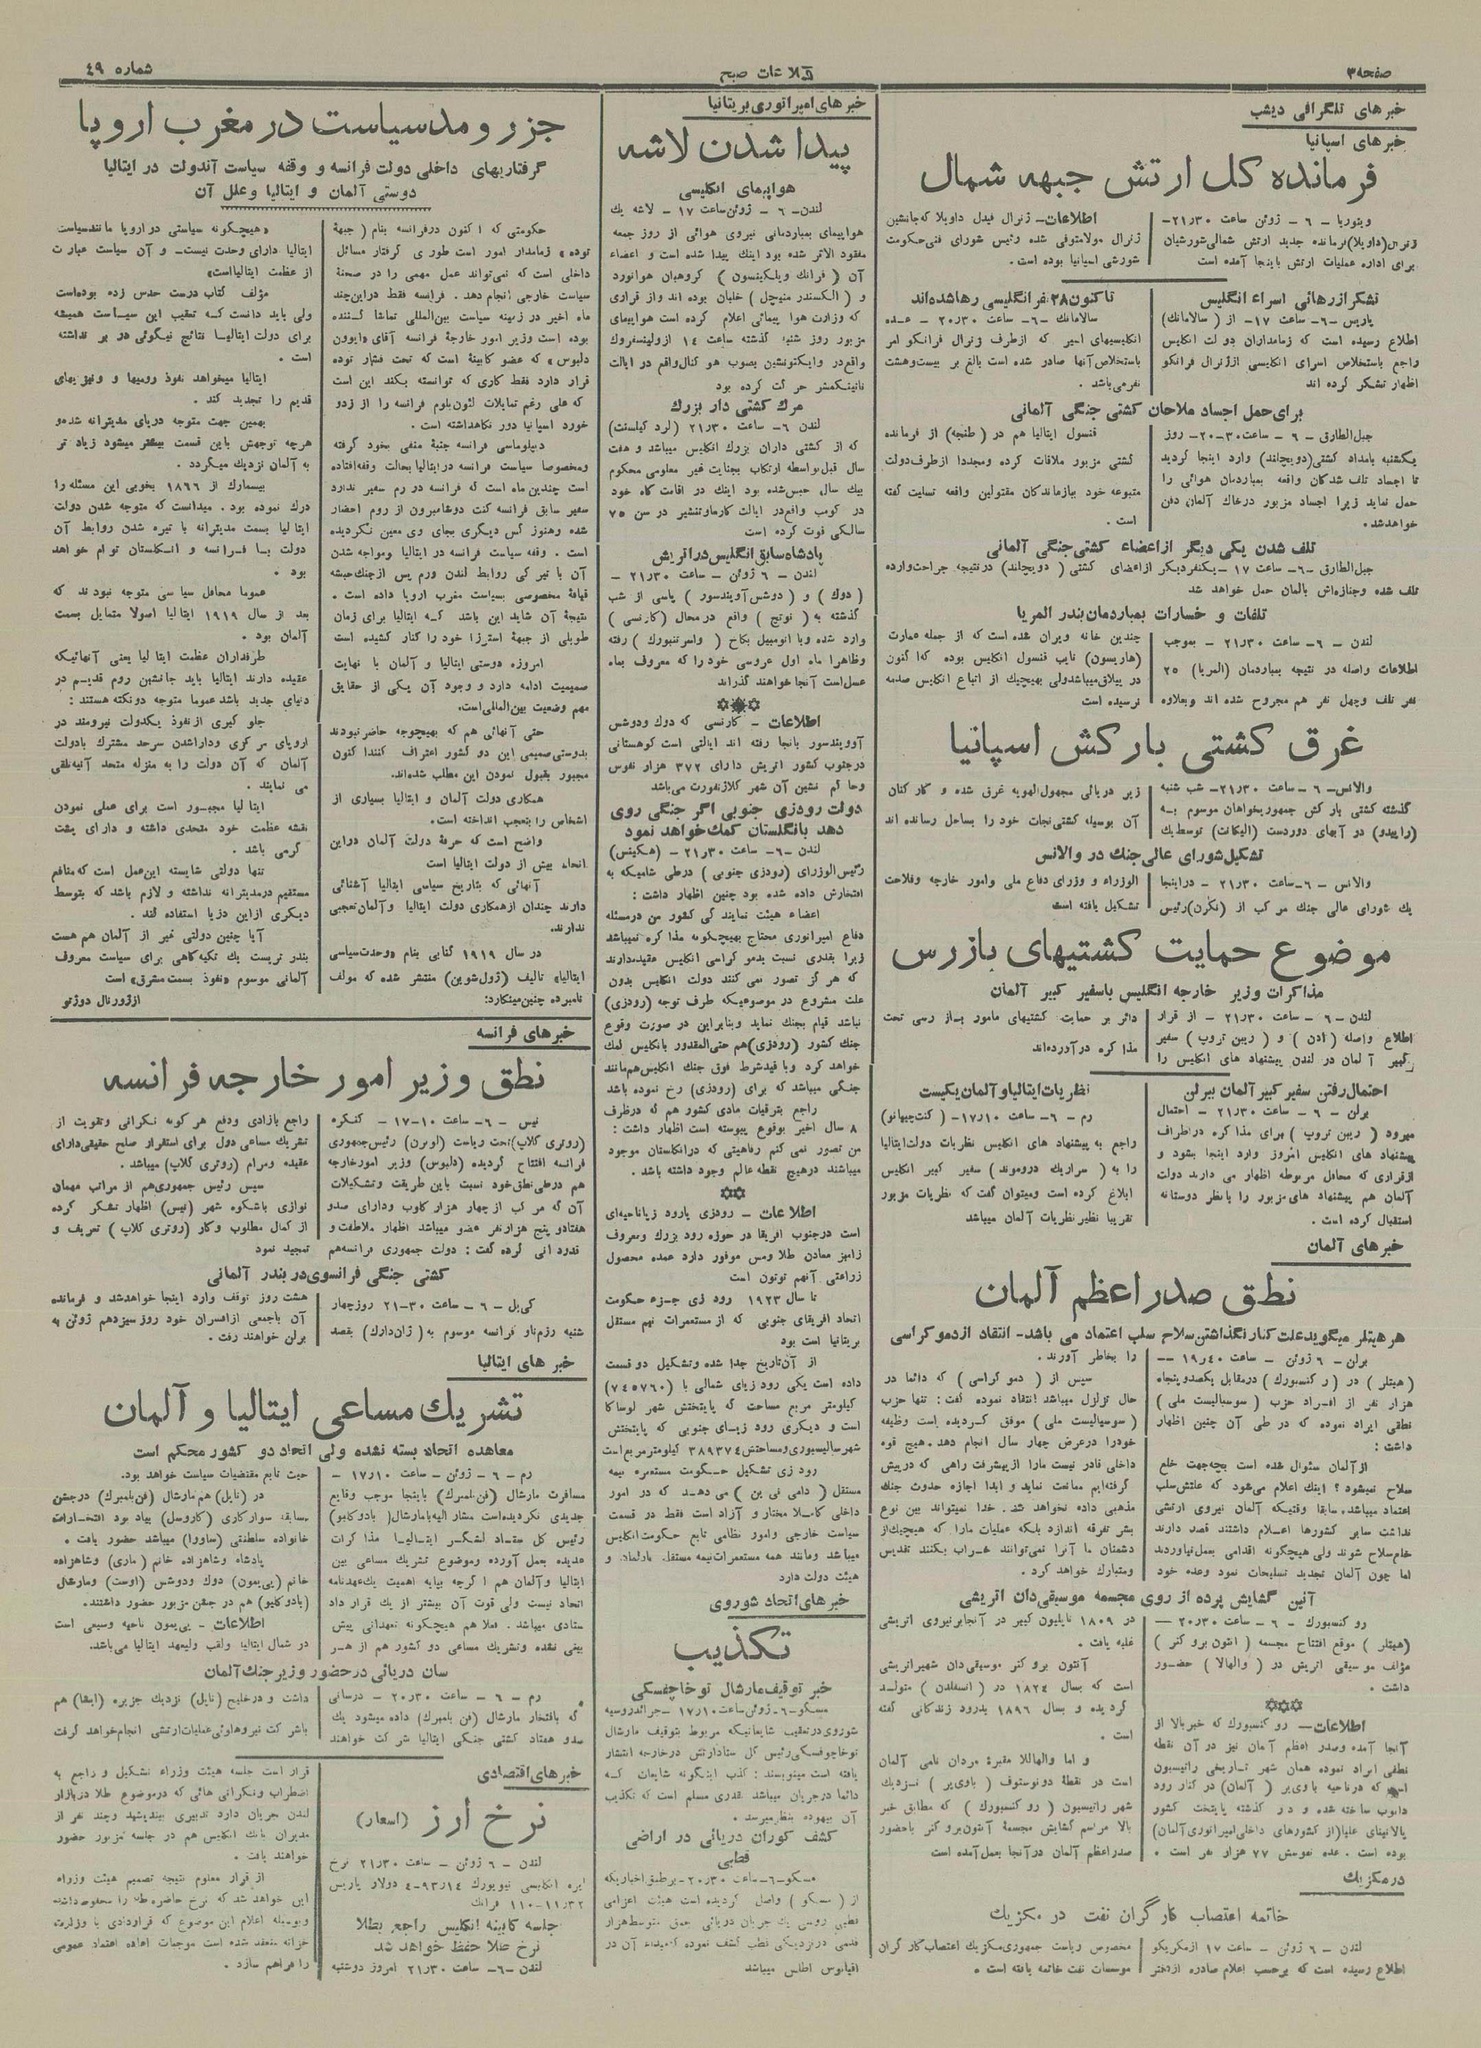 صفحه ۳
اطلاعات صبح
شماره ٤٩
خبرهای تلگرافی دیشب
خبرهای اسپانیا
فرمانده کل ارتش جبهه شمال
ویتوریا - ٦ - ژوئن ساعت ۲۱٫۳۰-
ژنرال (داویلا) فرمانده جدید ارتش شمالی شورشیان
برای اداره عملیات ارتش باینجا آمده است
اطلاعات- ژنرال فیدل داویلا که جانشین
ژنرال مولامتوفی شده رئیس شورای فنی حکومت
شورشی اسپانیا بوده است.
تشکر از رهائی اسراء انگلیس
پاریس -٦- ساعت ۱۷- از (سالامانك)
اطلاع رسیده است که زمامداران دولت انگلیس
راجع باستخلاص اسرای انگلیسی از ژنرال فرانکو
اظهار تشکر کرده اند
تا کنون ۲۸ نفر انگلیسی رها شده اند
سالامانك -٦- ساعت ۲۰٫۳۰- عده
انگلیسیهای اسیر که از طرف ژنرال فرانکو امر
باستخلاص آنها صادر شده است بالغ بر بیست وهشت
نفر می‌باشد.
برای حمل اجساد ملاحان کشتی جنگی آلمانی
جبل الطارق - ٦ - ساعت ۲۰-۳۰- روز
یکشنبه بامداد کشتی (دویچلند) وارد اینجا گردید
تا اجساد تلف شدگان واقعه بمباردمان هوائی را
حمل نماید زیرا اجساد مزبور درخاك آلمان دفن
خواهدشد.
قنسول ایتالیا هم در (طنجه) از فرمانده
کشتی مزبور ملاقات کرده ومجددا از طرف دولت
متبوعه خود ببازماندگان مقتولین واقعه تسلیت گفته
است.
تلف شدن یکی دیگر از اعضاء کشتی جنگی آلمانی
جبل الطارق -٦- ساعت ۱۷ - یکنفر دیگر از اعضای کشتی (دویچلند) در نتیجه جراحت وارده
تلف شده وجنازه‌اش بالمان حمل خواهد شد
تلفات و خسارات بمباردمان بندر المریا
لندن -٦- ساعت ۲۱٫۳۰ - بموجب
اطلاعات واصله در نتیجه بمباردمان (المریا) ۲۵
نفر تلف وچهل نفر هم مجروح شده اند وبعلاوه
چندین خانه ویران شده است که از جمله عمارت
(هاریسون) نایب قنسول انگلیس بوده که اکنون
در ییلاق میباشد ولی بهیچیك از اتباع انگلیس صدمه
نرسیده است
غرق کشتی بارکش اسپانیا
والانس -٦- ساعت ۲۱٫۳۰- شب شنبه
گذشته کشتی بارکش جمهوریخواهان موسوم به
(راپیدو) در آبهای دوردست (الیکانت) توسط یك
زیر دریائی مجهول الهویه غرق شده و کارکنان
آن بوسیله کشتی نجات خود را بساحل رسانده اند
تشکیل شورای عالی جنك در والانس
والانس -٦- ساعت ۲۱٫۳۰ - دراینجا
یك شورای عالی جنك مرکب از (نگرن) رئیس
الوزراء و وزرای دفاع ملی وامور خارجه وفلاحت
تشکیل یافته است
موضوع حمایت کشتیهای بازرس
مذاکرات وزیر خارجه انگلیس باسفیر کبیر آلمان
لندن -٦- ساعت ۲۱٫۳۰ - از قرار
اطلاع واصله (ادن) و (ریبن تروپ) سفیر
کبیر آلمان در لندن پیشنهاد های انگلیس را
دائر بر حمایت کشتیهای مامور بازرسی تحت
مذاکره درآورده‌اند
احتمال رفتن سفیر کبیر آلمان ببرلن
برلن -٦- ساعت ۲۱٫۳۰ - احتمال
میرود (ریبن تروپ) برای مذاکره در اطراف
پیشنهاد های انگلیس امروز وارد اینجا بشود و
از قراری که محافل مربوطه اظهار می دارند دولت
آلمان هم پیشنهاد های مزبور را بانظر دوستانه
استقبال کرده است.
نظریات ایتالیا و آلمان یکیست
رم -٦- ساعت ۱۷٫۱۰- (کنت چیهانو)
راجع به پیشنهاد های انگلیس نظریات دولت ایتالیا
را به (سراریك دروموند) سفیر کبیر انگلیس
ابلاغ کرده است ومیتوان گفت که نظریات مزبور
تقریبا نظیر نظریات آلمان میباشد
خبرهای آلمان
نطق صدراعظم آلمان
هرهیتلر میگوید علت کنار نگذاشتن سلاح سلب اعتماد می باشد- انتقاد از دموکراسی
برلن - ٦ ژوئن - ساعت ۱۹٫٤۰ --
(هیتلر) در (رگنسبورك) درمقابل یکصدو پنجاه
هزار نفر از افراد حزب (سوسیالیست ملی)
نطقی ایراد نموده که در طی آن چنین اظهار
داشت:
از آلمان سئوال شده است بچه جهت خلع
سلاح نمیشود؟ اینك اعلام می‌شود که علتش سلب
اعتماد میباشد. سابقا وقتیکه آلمان نیروی ارتشی
نداشت سایر کشورها اعلام داشتند قصد دارند
خلع سلاح شوند ولی هیچگونه اقدامی بعمل نیاوردند
اما چون آلمان تجدید تسلیحات نمود وعده خود
را بخاطر آورند.
سپس از (دموکراسی) که دائما در
حال تزلزل میباشد انتقاد نموده گفت: تنها حزب
(سوسیالیست ملی) موفق گردیده است وظیفه
خودرا درعرض چهار سال انجام دهد. هیچ قوه
داخلی قادر نیست مارا از پیشرفت راهی که در پیش
گرفته‌ایم ممانعت نماید و ابدا اجازه حدوث جنك
مذهبی داده نخواهد شد. خدا نمیتواند بین نوع
بشر تفرقه اندازد بلکه عملیات مارا که هیچیك از
دشمنان ما آنرا نمی‌توانند خراب بکنند تقدیس
ومتبارك خواهد کرد.
آئین گشایش پرده از روی مجسمه موسیقی دان اتریشی
رو کنسبورك - ٦ - ساعت ۲۰٫۳۰ --
(هیتلر) موقع افتتاح مجسمه (انتون بروکنر)
مؤلف موسیقی اتریش در (والهالا) حضور
داشت.
اطلاعات- روکنسبورك که خبر بالا از
آنجا آمده وصدر اعظم آلمان نیز در آن نقطه
نطقی ایراد نموده همان شهر تاریخی راتیسبون
است که درناحیه باوی یر (آلمان) در کنار رود
دانوب ساخته شده و در گذشته پایتخت کشور
پالاتینای علیا (از کشورهای داخلی امپراتوری آلمان)
بوده است. عده نفوسش ۷۷ هزار نفر است.
در ۱۸۰۹ ناپلیون کبیر در آنجا برنیروی اتریشی
غلبه یافت.
آنتون بروکنر موسیقی دان شهیر اتریشی
است که بسال ۱۸۲٤ در (انسفلدن) متولد
گردیده و بسال ۱۸۹٦ بدرود زندگانی گفته
است.
و اما والهاللا مقبرهٔ مردان نامی آلمان
است در نقطهٔ دونوستوف (باوی یر) نزدیك
شهر راتیسبون (روکنسبورك) که مطابق خبر
بالا مراسم گشایش مجسمهٔ آنتون بروکنر باحضور
صدراعظم آلمان در آنجا بعمل آمده است
در مکزیك
خاتمه اعتصاب کارگران نفت در مکزیك
لندن - ٦ ژوئن - ساعت ۱۷ از مکزیکو
اطلاع رسیده است که برحسب اعلام صادره از دفتر
مخصوص ریاست جمهوری مکزیك اعتصاب کارگران
موسسات نفت خاتمه یافته است.
خبرهای امپراتوری بریتانیا
پیدا شدن لاشه
هواپیمای انگلیسی
لندن -٦- ژوئن ساعت ۱۷ - لاشه یك
هواپیمای بمباردمانی نیروی هوائی از روز جمعه
مفقود الاثر شده بود اینك پیدا شده است و اعضاء
آن (فرانك ویلکینسون) گروهبان هوانورد
و (الکسندر منیچل) خلبان بوده اند واز قراری
که وزارت هوا پیمائی اعلام کرده است هواپیمای
مزبور روز شنبه گذشته ساعت ۱٤ از ولینسفروك
واقع در وایکتونشین بصوب هو کنال واقع در ایالت
نانینکمشر حرکت کرده بود
مرك کشتی دار بزرك
لندن -٦- ساعت ۲۱٫۳۰ (لرد کیلسنت)
که از کشتی داران بزرك انگلیس میباشد و هفت
سال قبل بواسطه ارتکاب بجنایت غیر معلومی محکوم
بیك سال حبس شده بود اینك در اقامت گاه خود
در کومب واقع در ایالت کارماوتنشیر در سن ۷۵
سالگی فوت کرده است
پادشاه سابق انگلیس در اتریش
لندن - ٦ ژوئن - ساعت ۲۱٫۳۰ -
(دوك) و (دوشس آویندسور) پاسی از شب
گذشته به (نوتچ) واقع در محال (کارنسی)
وارد شده و با اتومبیل بکاخ (واسر تنبورك) رفته
وظاهرا ماه اول عروسی خود را که معروف بماه
عسل است آنجا خواهند گذراند
اطلاعات - کارنسی که دوك ودوشس
آوویندسور بانجا رفته اند ایالتی است کوهستانی
درجنوب کشور اتریش دارای ۳۷۲ هزار نفوس
وحاکم نشین آن شهر کلاژنفورت می‌باشد
دولت رودزی جنوبی اگر جنگی روی
دهد بانگلستان کمك خواهد نمود
لندن -٦- ساعت ۲۱٫۳۰ - (هکینس)
رئیس الوزرای (رودزی جنوبی) درطی شامیکه به
افتخارش داده شده بود چنین اظهار داشت:
اعضاء هیئت نمایندگی کشور من درمسئله
دفاع امپراتوری محتاج بهیچگونه مذاکره نمیباشد
زیرا بقدری نسبت بدموکراسی انگلیس عقیده دارند
که هرگز تصور نمی کنند دولت انگلیس بدون
علت مشروع در موضوعیکه طرف توجه (رودزی)
نباشد قیام بجنك نماید وبنابراین در صورت وقوع
جنك کشور (رودزی) هم حتی المقدور بانگلیس کمك
خواهد کرد وباقید شرط فوق جنك انگلیس هم مانند
جنگی میباشد که برای (رودزی) رخ نموده باشد
راجع بترقیات مادی کشور هم که درظرف
۸ سال اخیر بوقوع پیوسته است اظهار داشت:
من تصور نمی کنم رفاهیتی که در انگلستان موجود
میباشد در هیچ نقطه عالم وجود داشته باشد.
اطلاعات - رودزی یارود زیا ناحیه‌ای
است درجنوب افریقا در حوزه رود بزرك ومعروف
زامبز معادن طلا ومس موفور دارد عمده محصول
زراعتی آنهم توتون است
تا سال ۱۹۲۳ رودزی جزء حکومت
اتحاد افریقای جنوبی که از مستعمرات نیم مستقل
بریتانیا است بود
از آن تاریخ جدا شده وتشکیل دو قسمت
داده است یکی رود زیای شمالی با (۷٤۵۷٦۰)
کیلومتر مربع مساحت که پایتختش شهر لوساکا
است و دیگری رود زیای جنوبی که پایتختش
شهر سالیسبوری ومساحتش ۳۸۹۳۷٤ کیلومتر مربع است
رودزی تشکیل حکومت مستعمره نیمه
مستقل (دامی نی ین) می‌دهد که در امور
داخلی کاملا مختار و آزاد است فقط در قسمت
سیاست خارجی وامور نظامی تابع حکومت انگلیس
میباشد ومانند همه مستعمرات نیمه مستقل پارلمان و
هیئت دولت دارد
خبرهای اتحاد شوروی
تکذیب
خبر توقیف مارشال توخاچفسکی
مسکو -٦- ژوئن ساعت ۱۷٫۱۰ - جرائد روسیه
شوروی در تعقیب شایعاتیکه مربوط بتوقیف مارشال
توخاچوفسکی رئیس کل ستاد ارتش در خارجه انتشار
یافته است مینویسند: کذب اینگونه شایعات که
دائما در جریان میباشد بقدری مسلم است که تکذیب
آن بیهوده بنظر میرسد.
کشف کوران دریائی در اراضی
قطبی
مسکو -٦- ساعت ۲۰٫۳۰- برطبق اخباریکه
از (مسکو) واصل گردیده است هیئت اعزامی
قطبی روس یك جریان دریائی بعمق متوسط هزار
قدمی در نزدیکی قطب کشف نموده که مبداء آن در
اقیانوس اطلس میباشد
جزر و مد سیاست در مغرب اروپا
گرفتاریهای داخلی دولت فرانسه و وقفه سیاست آندولت در ایتالیا
دوستی آلمان و ایتالیا وعلل آن
حکومتی که اکنون در فرانسه بنام (جبههٔ
توده» زمامدار امور است طوری گرفتار مسائل
داخلی است که نمی‌تواند عمل مهمی را در صحنهٔ
سیاست خارجی انجام دهد. فرانسه فقط در این چند
ماه اخیر در زمینه سیاست بین‌المللی تماشا کننده
بوده است وزیر امور خارجهٔ فرانسه آقای «ایوون
دلبوس» که عضو کابینهٔ است که تحت فشار توده
قرار دارد فقط کاری که توانسته بکند این است
که علی رغم تمایلات لئون بلوم فرانسه را از زدو
خورد اسپانیا دور نگاهداشته است.
دیپلوماسی فرانسه جنبهٔ منفی بخود گرفته
ومخصوصا سیاست فرانسه در ایتالیا بحالت وقفه افتاده
است چندین ماه است که فرانسه در رم سفیر ندارد
سفیر سابق فرانسه کنت دوشامبرون از روم احضار
شده وهنوز کس دیگری بجای وی معین نگردیده
است. وقفه سیاست فرانسه در ایتالیا ومواجه شدن
آن با تیرگی روابط لندن ورم پس از جنك حبشه
قیافهٔ مخصوصی بسیاست مغرب اروپا داده است.
نتیجهٔ آن شاید این باشد که ایتالیا برای زمان
طویلی از جبههٔ استرزا خود را کنار کشیده است
امروزه دوستی ایتالیا و آلمان با نهایت
صمیمیت ادامه دارد و وجود آن یکی از حقایق
مهم وضعیت بین‌المللی است.
حتی آنهائی هم که بهیچوجه حاضر نبودند
بدوستی صمیمی این دو کشور اعتراف کنند اکنون
مجبور بقبول نمودن این مطلب شده‌اند.
همکاری دولت آلمان و ایتالیا بسیاری از
اشخاص را بتعجب انداخته است.
واضح است که حرفهٔ دولت آلمان در این
اتحاد بیش از دولت ایتالیا است
آنهائی که بتاریخ سیاسی ایتالیا آشنائی
دارند چندان از همکاری دولت ایتالیا و آلمان تعجبی
ندارند.
در سال ۱۹۱۹ کتابی بنام «وحدت سیاسی
ایتالیا» تالیف (ژول شوپن) منتشر شده که مولف
نامبرده چنین مینگارد:
«هیچگونه سیاستی در اروپا مانند سیاست
ایتالیا دارای وحدت نیست- و آن سیاست عبارت
از عظمت ایتالیا است»
مؤلف کتاب درست حدس زده بوده است
ولی باید دانست که تعقیب این سیاست همیشه
برای دولت ایتالیا نتایج نیکوئی در بر نداشته
است.
ایتالیا میخواهد نفوذ رومیها و ونیزیهای
قدیم را تجدید کند.
بهمین جهت متوجه دریای مدیترانه شده و
هرچه توجهش باین قسمت بیشتر میشود زیاد تر
به آلمان نزدیك میگردد.
بیسمارك از ۱۸٦٦ بخوبی این مسئله را
درك نموده بود. میدانست که متوجه شدن دولت
ایتالیا بسمت مدیترانه با تیره شدن روابط آن
دولت با فرانسه و انگلستان توام خواهد
بود.
عموما محافل سیاسی متوجه نبودند که
بعد از سال ۱۹۱۹ ایتالیا اصولا متمایل بسمت
آلمان بود.
طرفداران عظمت ایتالیا یعنی آنهائیکه
عقیده دارند ایتالیا باید جانشین روم قدیم در
دنیای جدید باشد عموما متوجه دو نکته هستند:
جلوگیری از نفوذ یکدولت نیرومند در
اروپای مرکزی وداراشدن سرحد مشترك بادولت
آلمان که آن دولت را به منزله متحد آتیه تلقی
می نمایند.
ایتالیا مجبور است برای عملی نمودن
نقشه عظمت خود متحدی داشته و دارای پشت
گرمی باشد.
تنها دولتی شایسته این عمل است که منافع
مستقیم در مدیترانه نداشته و لازم باشد که بتوسط
دیگری از این دریا استفاده کند.
آیا چنین دولتی غیر از آلمان هم هست
بندر تریست یك تکیه گاهی برای سیاست معروف
آلمانی موسوم «نفوذ بسمت مشرق» است
از ژورنال دوژنو
خبرهای فرانسه
نطق وزیر امور خارجه فرانسه
نیس -٦- ساعت ۱۰-۱۷ - کنگره
(روتری کلاپ) تحت ریاست (لوبرن) رئیس جمهوری
فرانسه افتتاح گردیده (دلبوس) وزیر امور خارجه
هم درطی نطق خود نسبت باین طریقت وتشکیلات
آن که مرکب از چهار هزار کلوپ ودارای صدو
هفتادو پنج هزار نفر عضو میباشد اظهار ملاطفت و
قدردانی کرده گفت: دولت جمهوری فرانسه هم
راجع بازادی ودفع هرگونه نگرانی وتقویت از
تشریك مساعی دول برای استقرار صلح حقیقی دارای
عقیده ومرام (روتری کلاپ) میباشد.
سپس رئیس جمهوری هم از مراتب مهمان
نوازی باشکوه شهر (نیس) اظهار تشکر کرده
از کمال مطلوب وکار (روتری کلاپ) تعریف و
تمجید نمود
کشتی جنگی فرانسوی در بندر آلمانی
کی‌یل -٦- ساعت ۲۱-۳۰ روز چهار
شنبه رزم‌ناو فرانسه موسوم به (ژان دارك) بقصد
هشت روز توقف وارد اینجا خواهدشد و فرمانده
آن باجمعی از افسران خود روز سیزدهم ژوئن به
برلن خواهند رفت.
خبرهای ایتالیا
تشریك مساعی ایتالیا و آلمان
معاهده اتحاد بسته نشده ولی اتحاد دو کشور محکم است
رم -٦- ژوئن - ساعت ۱۷٫۱۰ -
مسافرت مارشال (فن بلمبرك) باینجا موجب وقایع
جدیدی نگردیده است مشارالیه بامارشال (بادوگلیو)
رئیس کل ستاد لشگر ایتالیا مذاکرات
عدیده بعمل آورده وموضوع تشریك مساعی بین
ایتالیا و آلمان هم اگرچه بپایه اهمیت یك عهدنامه
اتحاد نیست ولی قوت آن بیشتر از یك قرار داد
ستادی میباشد. فعلا هم هیچگونه تعهداتی پیش
بینی نشده وتشریك مساعی دو کشور هم از هر
حیث تابع مقتضیات سیاست خواهد بود.
در (ناپل) هم مارشال (فن بلمبرك) در جشن
مسابقه سوارکاری (کاروسل) بیاد بود افتخارات
خانواده سلطنتی (ساووا) میباشد حضور یافت.
پادشاه وشاهزاده خانم (ماری) وشاهزاده
خانم (پی یمون) دوك ودوشس (اوست) ومارشال
(بادوگلیو) هم در جشن مزبور حضور داشتند.
اطلاعات - پی یمون ناحیه وسیعی است
در شمال ایتالیا ولقب ولیعهد ایتالیا می‌باشد.
سان دریائی در حضور وزیر جنك آلمان
رم -٦- ساعت ۲۰٫۳۰ - درسانی
که بافتخار مارشال (فن بلمبرك) داده میشود یك
صدو هفتاد کشتی جنگی ایتالیا شرکت خواهند
داشت و درخلیج (ناپل) نزدیك جزیره (ایقا) هم
باشرکت نیروهوائی عملیات ارتشی انجام خواهد گرفت
خبرهای اقتصادی
نرخ ارز (اسعار)
لندن - ٦ ژوئن - ساعت ۲۱٫۳۰ نرخ
لیره انگلیسی نیویورك ٤-۹۳٫۱٤ دولار پاریس
۱۱۰-۱۱٫۳۲ فرانك
جلسه کابینه انگلیس راجع بطلا
نرخ طلا حفظ خواهد شد
لندن -٦- ساعت ۲۱٫۳۰ امروز دوشنبه
قرار است جلسه هیئت وزراء تشکیل و راجع به
اضطراب ونگرانی هائی که در موضوع طلا در بازار
لندن جریان دارد تدبیری بیندیشد وچند نفر از
مدیران بانك انگلیس هم در جلسه مزبور حضور
خواهند یافت.
از قرار معلوم نتیجه تصمیم هیئت وزراء
این خواهد شد که نرخ حاضره طلا را محفوظ داشته
وبوسیله اعلام این موضوع که قراردادی با وزارت
خزانه منعقد شده است موجبات اعاده اعتماد عمومی
را فراهم سازد.